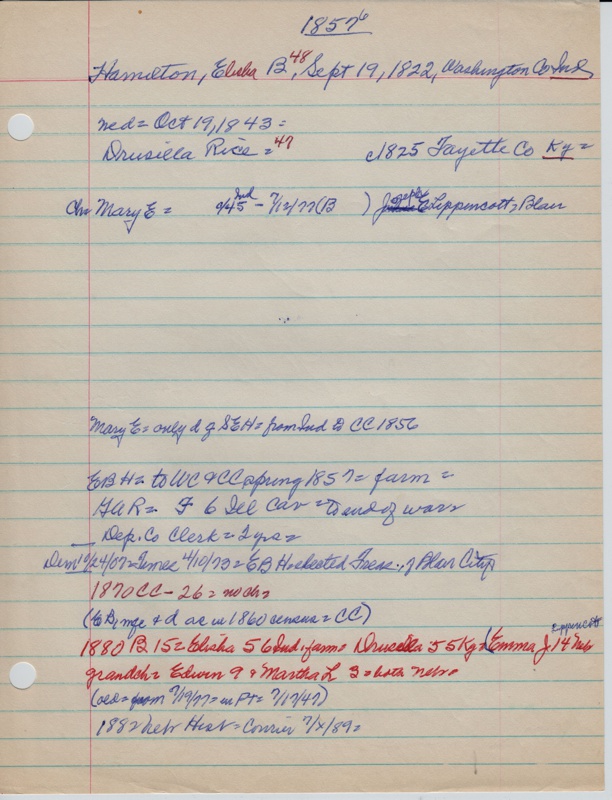 1857⁶
Hamilton, Elisha B⁴⁸, Sept 19, 1822, Washington Co Ind
med = Oct 19, 1843 =
Drusilla Rice = ⁴⁷ c1825 Fayette Co Ky =
Chn Mary E = 9/45 Ind - 7/12/77 (B ) Joseph E Lippencott, Blair
Mary E = only d of = from Ind to CC 1856
EBH = to WC & CC spring 1857 = farm =
GAR = F 6 Ill Cav = to end of war =
Dep. Co Clerk = 2 yrs =
/24/07 = Times 4/10/73 = EBH elected Treas. of Blair City
1870 CC - 26 = no ch =
(EB, wife & d are in 1860 census = CC)
1880 B 15 = Elisha 56 Ind, farm = Drusilla 55 Ky = (Emma J. Lippencott 14 Neb
grandch = Edwin 9 & Martha L 3 = both Neb =
7/19/77 = in PT = 7/17/47)
1882 Neb Hist = Courier 7/x/89 =